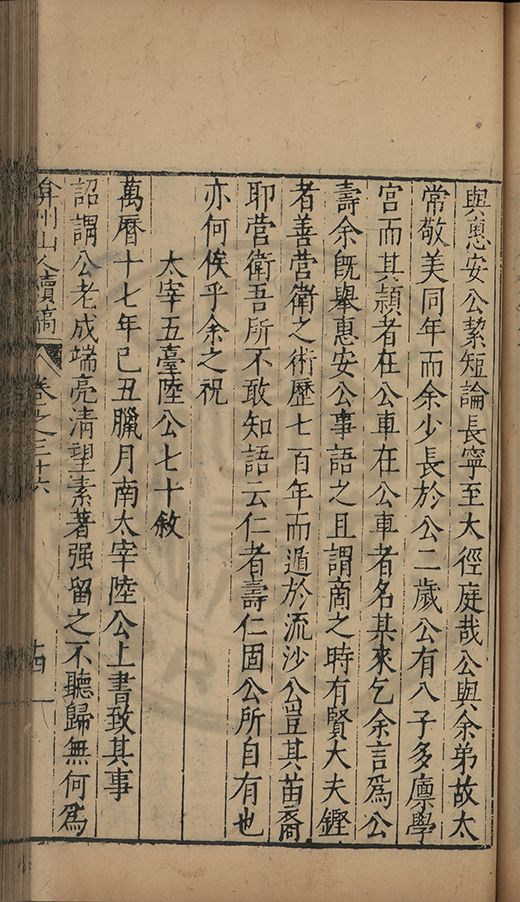 與惠安公絜短論長寧至大徑庭哉公與余弟故太
常敬美同年而余少長於公二歲公有八子多廩學
宮而其頴者在公車在公車者名某來乞余言爲公
壽余旣舉惠安公事語之且謂商之時有賢大夫鏗
者善營衛之術歷七百年而遁於流沙公豈其苗裔
耶營衛吾所不敢知語云仁者壽仁固公所自有也
亦何俟乎余之祝
太宰五臺陸公七十敘
萬曆十七年己丑臘月南太宰陸公上書致其事
詔謂公老成端亮清望素著强留之不聽歸無何爲
弇州山人續稿 卷之三十六 十四